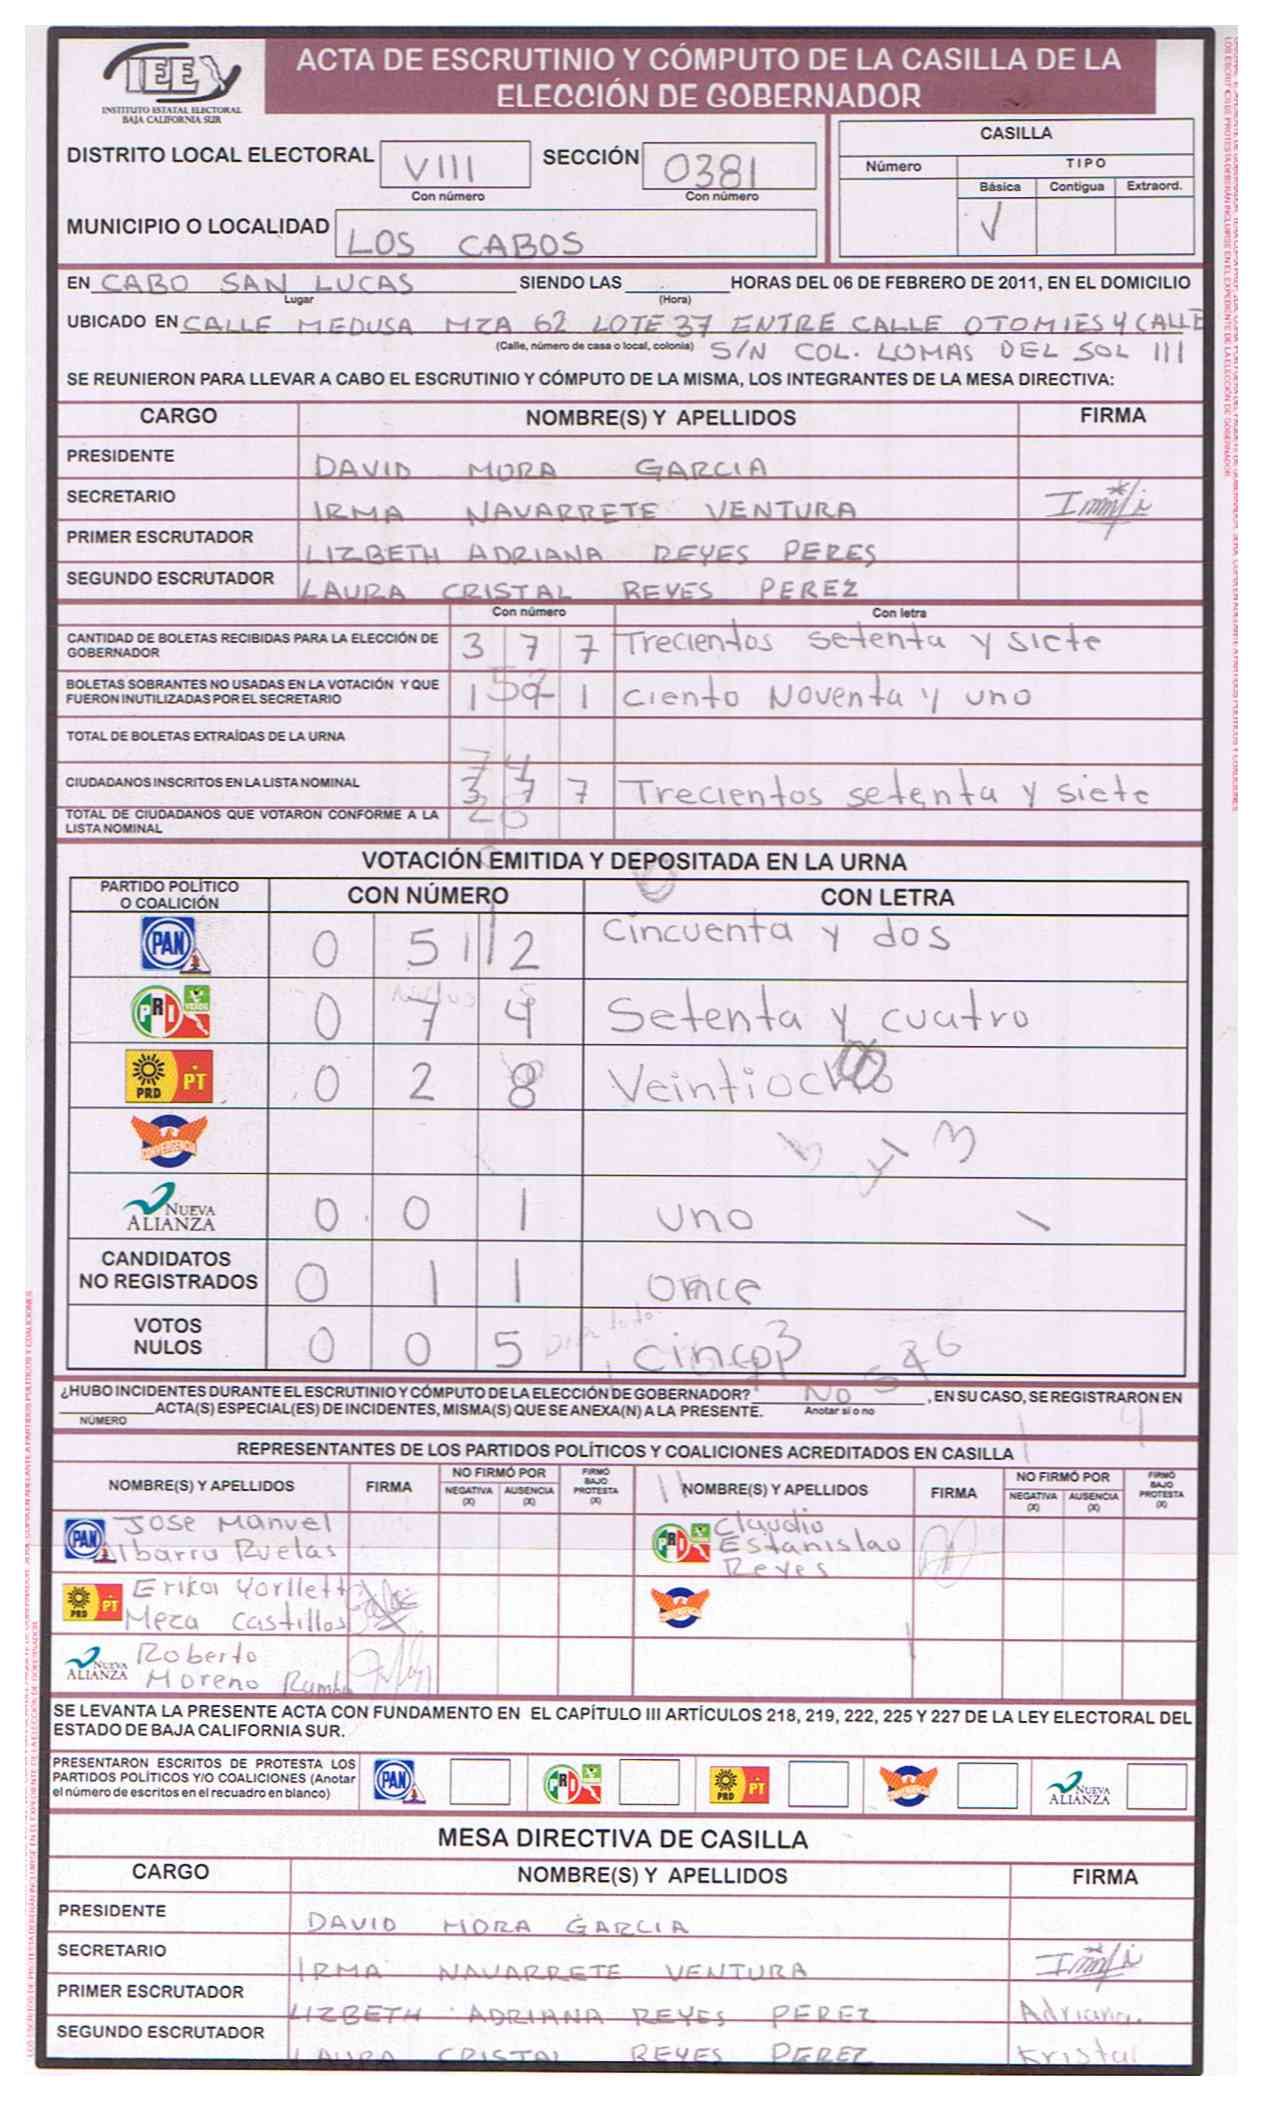 IEE
INSTITUTO ESTATAL ELECTORAL
BAJA CALIFORNIA SUR
ACTA DE ESCRUTINIO Y CÓMPUTO DE LA CASILLA DE LA
ELECCIÓN DE GOBERNADOR
DISTRITO LOCAL ELECTORAL VIII SECCIÓN 0381
Con número Con número
MUNICIPIO O LOCALIDAD LOS CABOS
CASILLA
Número TIPO
Básica Contigua Extraord.
√
EN CABO SAN LUCAS SIENDO LAS ______ HORAS DEL 06 DE FEBRERO DE 2011, EN EL DOMICILIO
Lugar (Hora)
UBICADO EN CALLE MEDUSA MZA 62 LOTE 37 ENTRE CALLE OTOMIES Y CALLE
(Calle, número de casa o local, colonia) S/N COL. LOMAS DEL SOL III
SE REUNIERON PARA LLEVAR A CABO EL ESCRUTINIO Y CÓMPUTO DE LA MISMA, LOS INTEGRANTES DE LA MESA DIRECTIVA:
CARGO NOMBRE(S) Y APELLIDOS FIRMA
PRESIDENTE DAVID MORA GARCIA
SECRETARIO IRMA NAVARRETE VENTURA
PRIMER ESCRUTADOR LIZBETH ADRIANA REYES PERES
SEGUNDO ESCRUTADOR LAURA CRISTAL REYES PEREZ
Con número Con letra
CANTIDAD DE BOLETAS RECIBIDAS PARA LA ELECCIÓN DE
GOBERNADOR 3 7 7 Trecientos setenta y siete
BOLETAS SOBRANTES NO USADAS EN LA VOTACIÓN Y QUE
FUERON INUTILIZADAS POR EL SECRETARIO 1 9 1 ciento Noventa y uno
TOTAL DE BOLETAS EXTRAÍDAS DE LA URNA
CIUDADANOS INSCRITOS EN LA LISTA NOMINAL 3 7 7 Trecientos setenta y siete
TOTAL DE CIUDADANOS QUE VOTARON CONFORME A LA
LISTA NOMINAL
VOTACIÓN EMITIDA Y DEPOSITADA EN LA URNA
PARTIDO POLÍTICO
O COALICIÓN CON NÚMERO CON LETRA
PAN 0 5 2 cincuenta y dos
PRI VERDE 0 7 4 Setenta y cuatro
PRD PT 0 2 8 Veintiocho
CONVERGENCIA
NUEVA
ALIANZA 0 0 1 uno
CANDIDATOS
NO REGISTRADOS 0 1 1 once
VOTOS
NULOS 0 0 5 cinco
¿HUBO INCIDENTES DURANTE EL ESCRUTINIO Y CÓMPUTO DE LA ELECCIÓN DE GOBERNADOR? No , EN SU CASO, SE REGISTRARON EN
______ ACTA(S) ESPECIAL(ES) DE INCIDENTES, MISMA(S) QUE SE ANEXA(N) A LA PRESENTE. Anotar si o no
NÚMERO
REPRESENTANTES DE LOS PARTIDOS POLÍTICOS Y COALICIONES ACREDITADOS EN CASILLA
NOMBRE(S) Y APELLIDOS FIRMA NO FIRMÓ POR NEGATIVA (X) AUSENCIA (X) FIRMÓ BAJO PROTESTA (X) NOMBRE(S) Y APELLIDOS FIRMA NO FIRMÓ POR NEGATIVA (X) AUSENCIA (X) FIRMÓ BAJO PROTESTA (X)
PAN Jose Manuel
Ibarra Ruelas
PRI Claudio
Estanislao
Reyes
PRD PT Erika Yorllett
Meza Castillos
NUEVA ALIANZA Roberto
Moreno Rumbo
SE LEVANTA LA PRESENTE ACTA CON FUNDAMENTO EN EL CAPÍTULO III ARTÍCULOS 218, 219, 222, 225 Y 227 DE LA LEY ELECTORAL DEL
ESTADO DE BAJA CALIFORNIA SUR.
PRESENTARON ESCRITOS DE PROTESTA LOS
PARTIDOS POLÍTICOS Y/O COALICIONES (Anotar
el número de escritos en el recuadro en blanco)
PAN PRI PRD PT NUEVA ALIANZA
MESA DIRECTIVA DE CASILLA
CARGO NOMBRE(S) Y APELLIDOS FIRMA
PRESIDENTE DAVID MORA GARCIA
SECRETARIO IRMA NAVARRETE VENTURA
PRIMER ESCRUTADOR LIZBETH ADRIANA REYES PEREZ Adriana.
SEGUNDO ESCRUTADOR LAURA CRISTAL REYES PEREZ Kristal